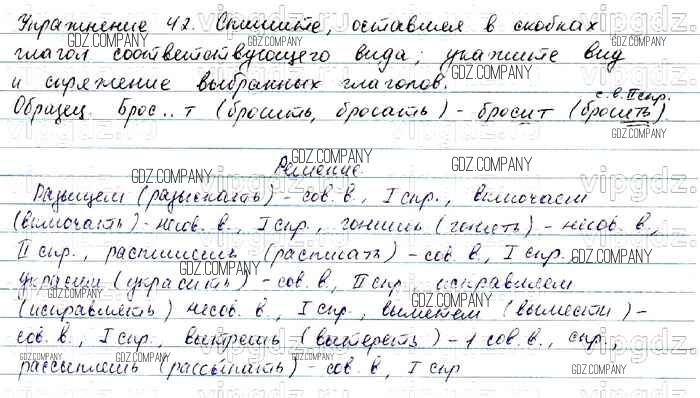 Упражнение 42. Спишите, оставляя в скобках
глагол соответствующего вида; укажите вид
и спряжение выбранных глаголов.
с.в. II спр.
Образец. Брос..т (бросить, бросать) - бросит (бросить)
Решение.
Разыщем (разыскать) - сов. в., I спр., включаем
(включать) - несов. в., I спр., гонишь (гонять) - несов. в.,
II спр., распишешь (расписать) - сов. в., I спр.,
украсим (украсить) - сов. в., II спр., исправляем
(исправлять) несов. в., I спр., выметем (вымести) -
сов. в., I спр., вытрешь (вытереть) - 1 сов. в., спр.,
рассыплешь (рассыпать) - сов. в, I спр
GDZ.COMPANY
vipgdz.ru